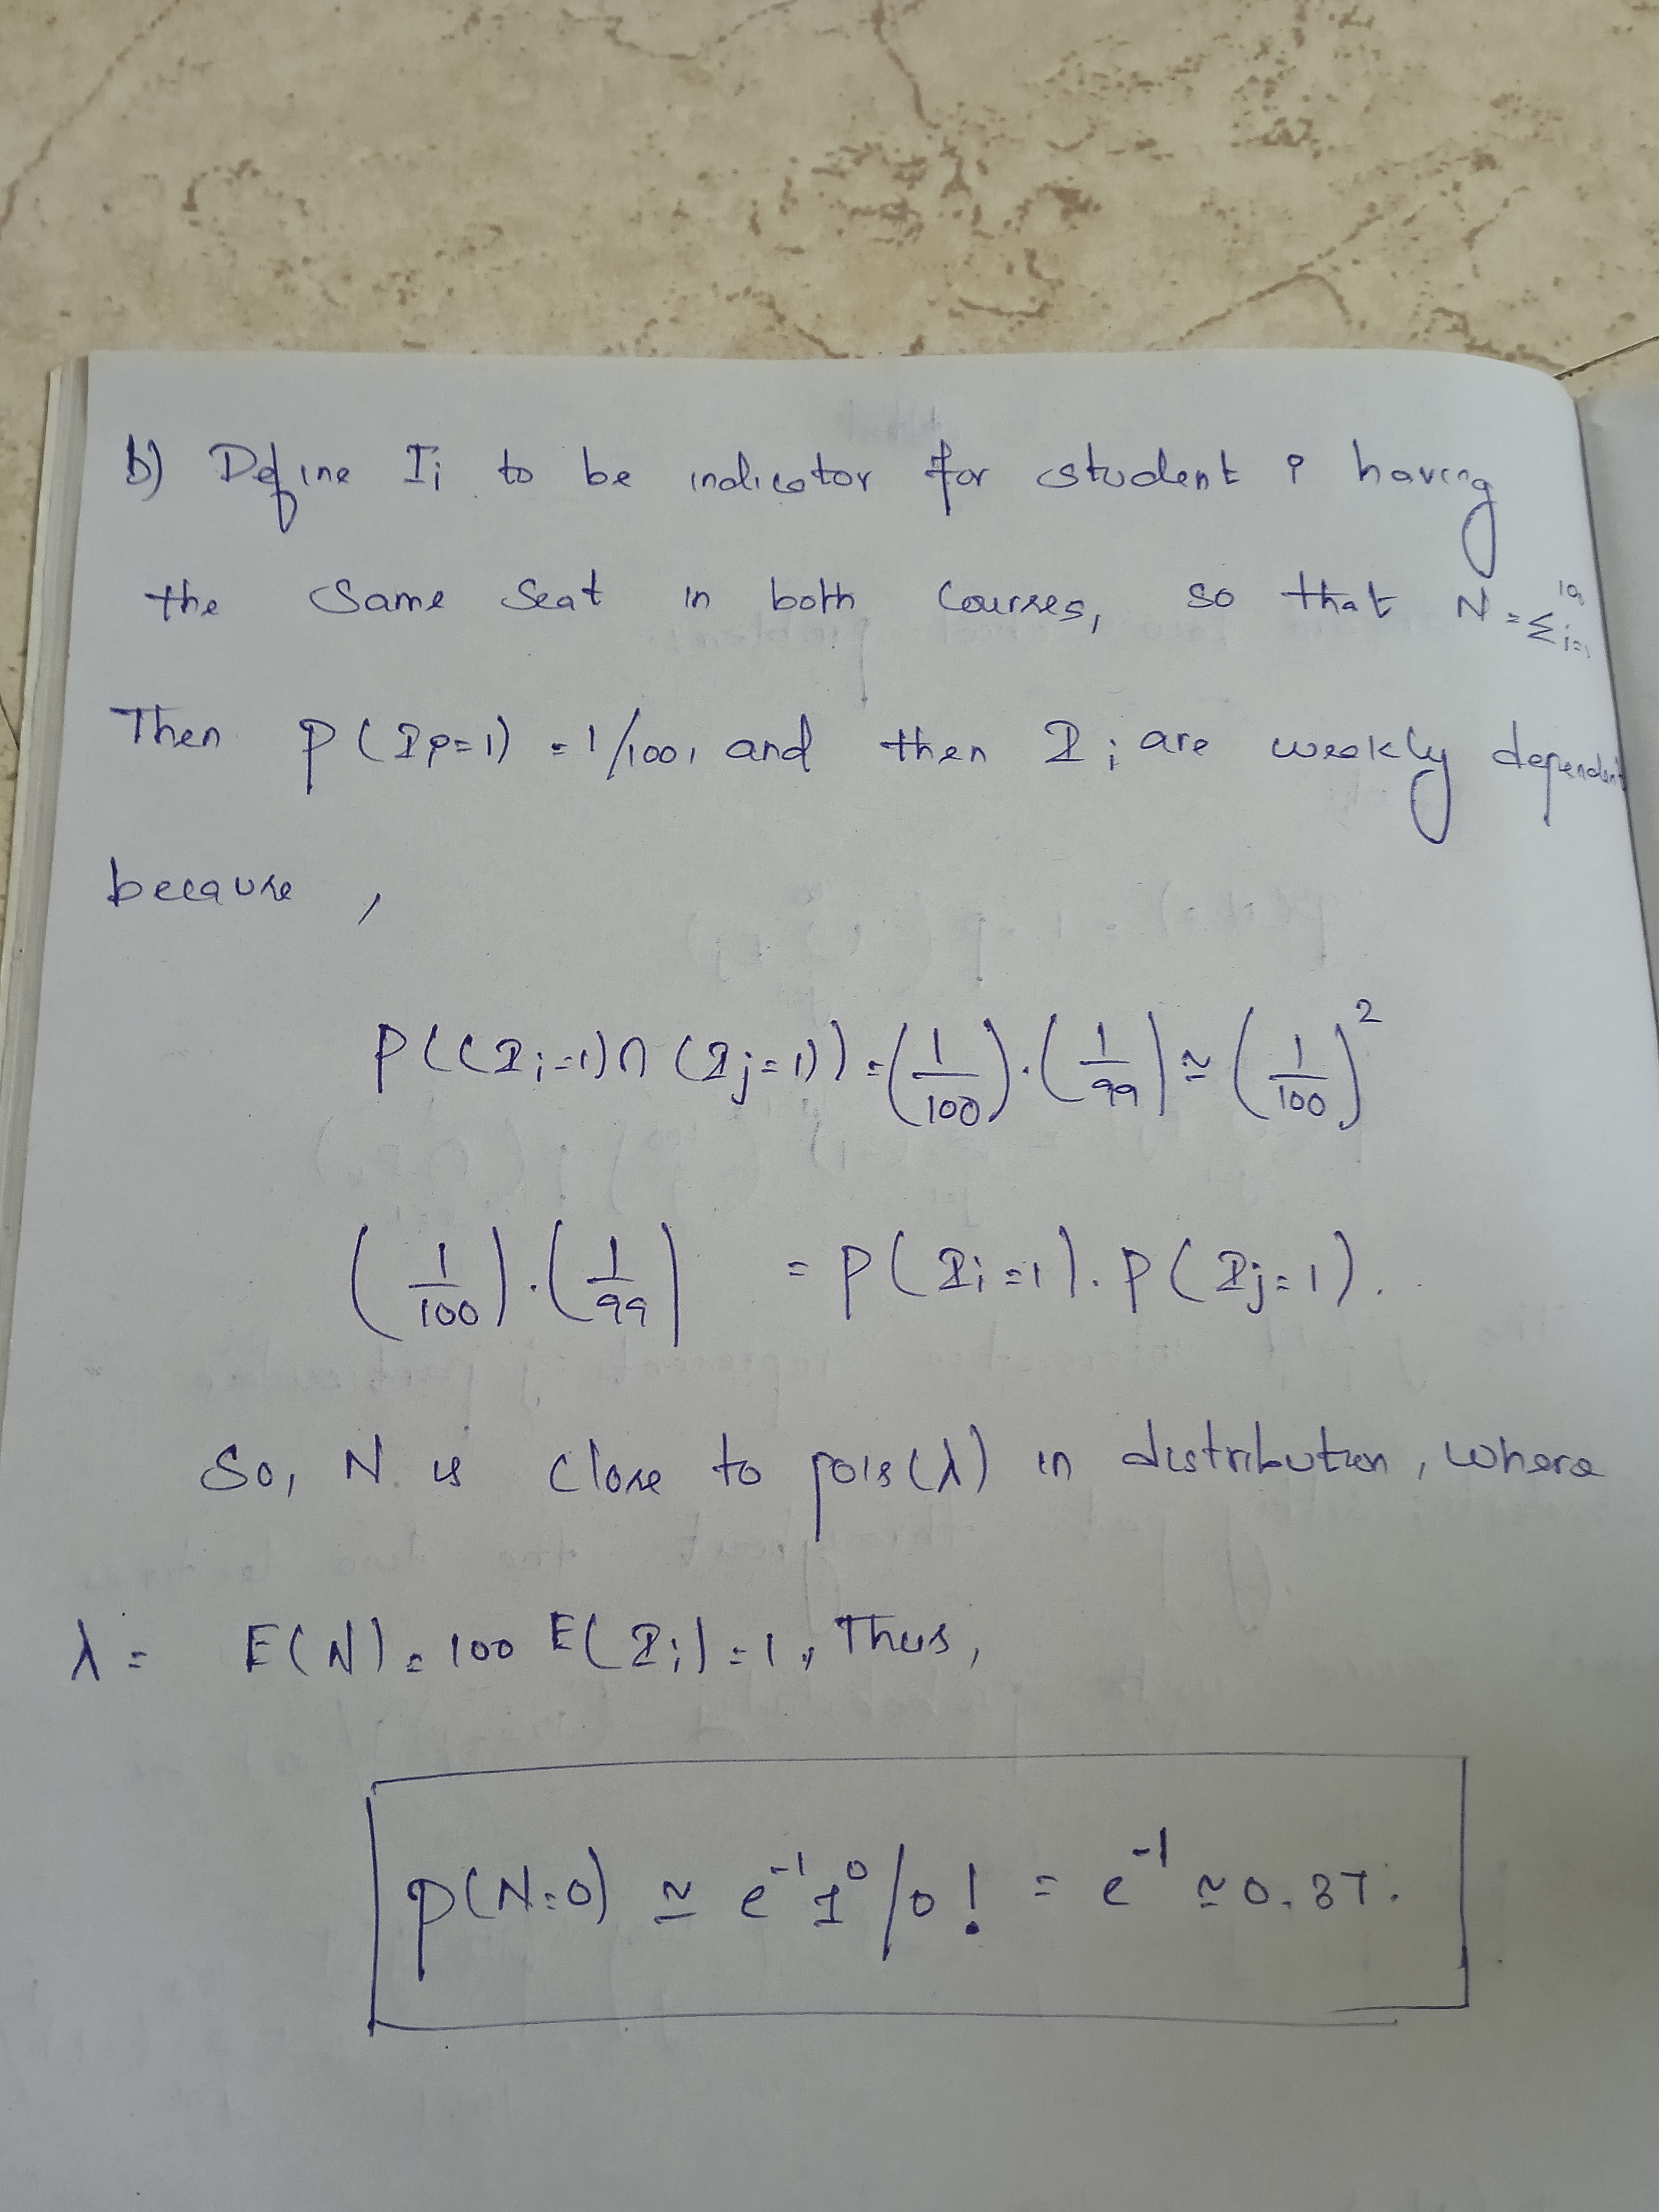 b) Define Ii to be indicator for student i having
the same seat in both courses, so that N = Σ i=
Then P(Ii=1) = 1/100, and then Ii are weakly dependent
because,
P((Ii=1)∩(Ij=1)) = (1/100).(1/99) ≃ (1/100)²
(1/100).(1/99) = P(Ii=1).P(Ij=1).
So, N is close to pois(λ) in distribution, where
λ = E(N) = 100 E(Ii) = 1, Thus,
P(N=0) ≃ e⁻¹1⁰/0! = e⁻¹ ≃ 0.37.